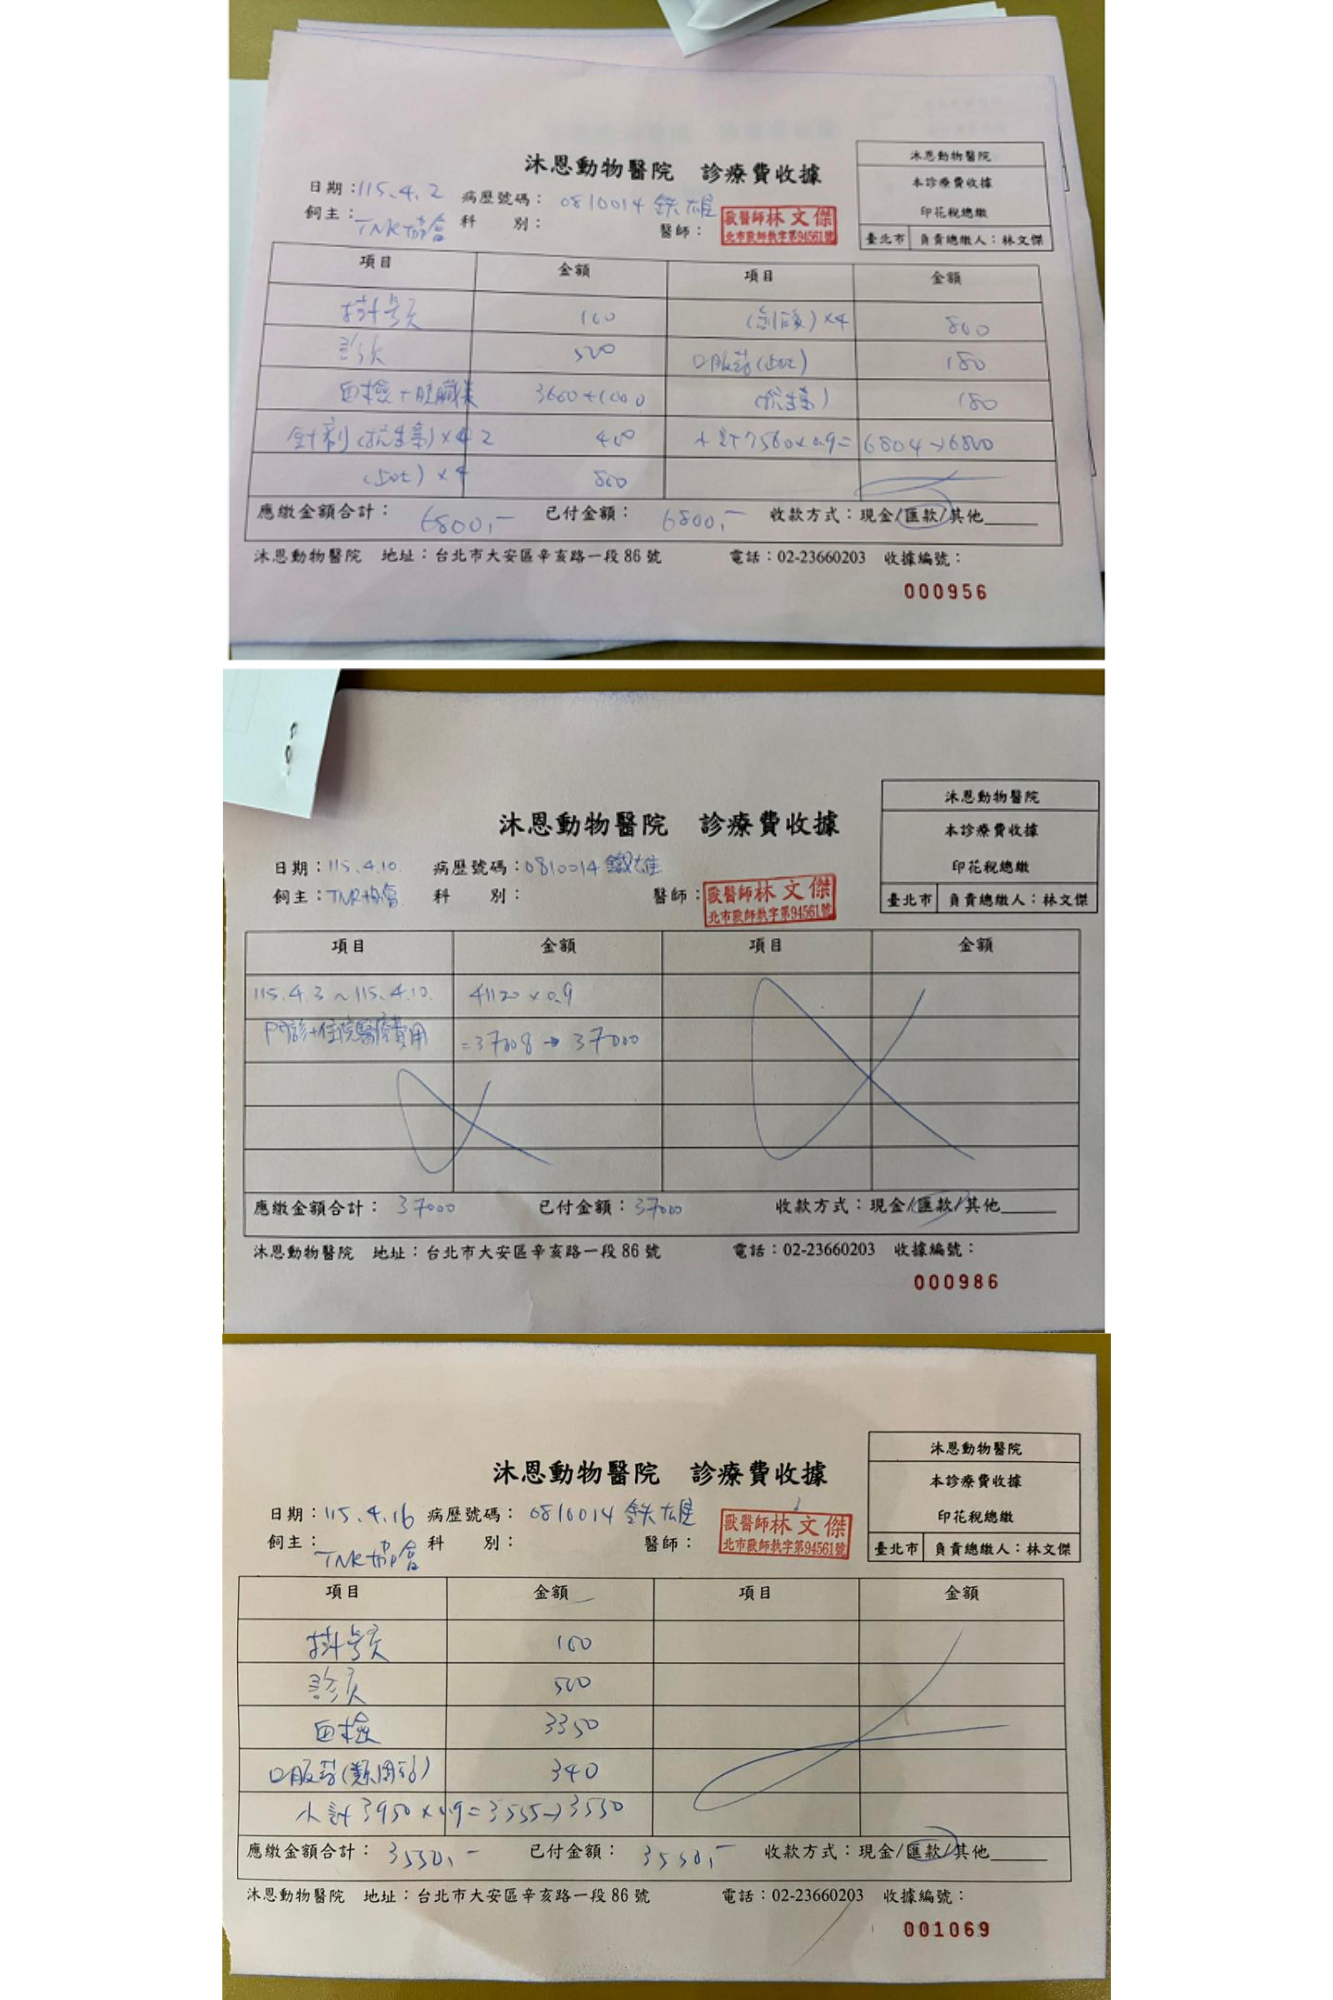 沐恩動物醫院 診療費收據
沐恩動物醫院
本診療費收據
印花稅總繳
臺北市 負責總繳人：林文傑
日期：115.4.2 病歷號碼：0810014 鉄雄
飼主：TNR協會 科 別： 醫師：
獸醫師林文傑
北市獸師執字第94561號
項目 金額 項目 金額
掛號費 100 ×4 800
診費 500 口服葯 180
血檢+ 3600+1000 (抗生素) 180
針劑(抗生素)×2 400 小計7560×0.9= 6804→6800
×4 800
應繳金額合計： 6800,- 已付金額： 6800,- 收款方式：現金/匯款/其他
沐恩動物醫院 地址：台北市大安區辛亥路一段86號 電話：02-23660203 收據編號：
000956
沐恩動物醫院 診療費收據
沐恩動物醫院
本診療費收據
印花稅總繳
臺北市 負責總繳人：林文傑
日期：115.4.10. 病歷號碼：0810014 鐵雄
飼主：TNR協會 科 別： 醫師：
獸醫師林文傑
北市獸師執字第94561號
項目 金額 項目 金額
115.4.3~115.4.10. 41120×0.9
門診+住院醫療費用 =37008→37000
應繳金額合計： 37000 已付金額：37000 收款方式：現金/匯款/其他
沐恩動物醫院 地址：台北市大安區辛亥路一段86號 電話：02-23660203 收據編號：
000986
沐恩動物醫院 診療費收據
沐恩動物醫院
本診療費收據
印花稅總繳
臺北市 負責總繳人：林文傑
日期：115.4.16 病歷號碼：0810014 鉄雄
飼主：TNR協會 科 別： 醫師：
獸醫師林文傑
北市獸師執字第94561號
項目 金額 項目 金額
掛號費 100
診費 500
血檢 3350
口服葯 340
小計3950×0.9=3555→3550
應繳金額合計： 3550,- 已付金額： 3550,- 收款方式：現金/匯款/其他
沐恩動物醫院 地址：台北市大安區辛亥路一段86號 電話：02-23660203 收據編號：
001069